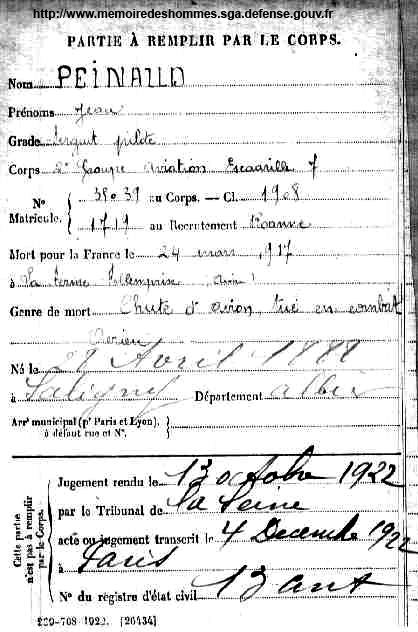 http://www.memoiredeshommes.sga.defense.gouv.fr
PARTIE À REMPLIR PAR LE CORPS.
Nom PEINAUD
Prénoms Jean
Grade Sergent pilote
Corps 2e Groupe Aviation Escadrille 7
No Matricule. 3539 au Corps. — Cl. 1908
1719 au Recrutement Roanne
Mort pour la France le 24 mars 1917
à La Ferme
Genre de mort Chute d'avion tué en combat
Aérien
Né le Avril 1888
à Saligny Département Allier
Arrt municipal (pr Paris et Lyon),
à défaut rue et No.
Cette partie n'est pas à remplir par le Corps.
Jugement rendu le 13 octobre 1922
par le Tribunal de La Seine
acte ou jugement transcrit le 4 Décembre 1922
à Paris
No du registre d'état civil 13 arrt
[26434]